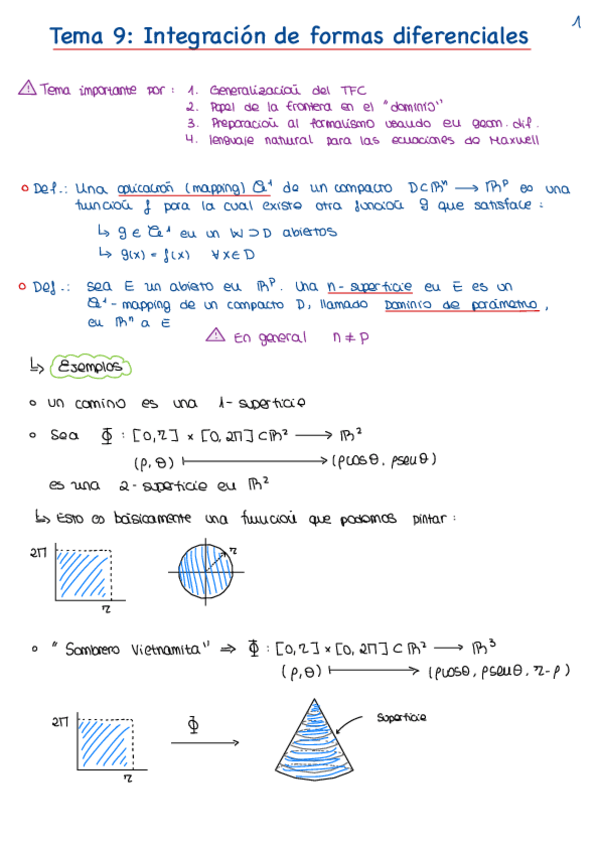 1
Tema 9: Integración de formas diferenciales
⚠ Tema importante por: 1. Generalización del TFC
2. Papel de la frontera en el "dominio"
3. Preparación al formalismo usando en geom. dif.
4. lenguaje natural para las ecuaciones de Maxwell
Def.: Una aplicación (mapping) C¹ de un compacto D⊂ℝⁿ → ℝᵖ es una
función f para la cual existe otra función g que satisface:
↳ g ∈ C¹ en un W ⊃ D abiertos
↳ g(x) = f(x) ∀x∈D
Def.: sea E un abierto en ℝᵖ. Una n-superficie en E es un
C¹-mapping de un compacto D, llamado Dominio de parámetro,
en ℝⁿ a E
⚠ En general n ≠ p
↳ Ejemplos
un camino es una 1-superficie
Sea Φ : [0,r] × [0,2π] ⊂ ℝ² → ℝ²
(ρ,θ) ↦ (ρcosθ, ρsenθ)
es una 2-superficie en ℝ²
↳ Esto es básicamente una función que podemos pintar:
2π
r
r
"Sombrero Vietnamita" ⇒ Φ : [0,r] × [0,2π] ⊂ ℝ² → ℝ³
(ρ,θ) ↦ (ρcosθ, ρsenθ, r-ρ)
2π
Φ
Superficie
r